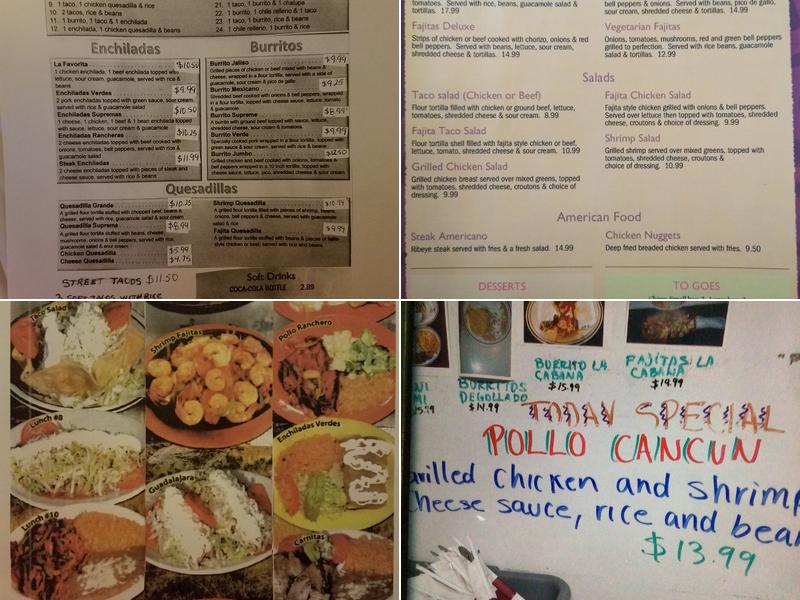 9. 1 taco, 1 chicken quesadilla & rice
10. 2 tacos, rice & beans
11. 1 burrito, 1 taco & 1 enchilada
12. 1 enchilada, 1 chicken quesadilla
21. 1 taco, 1 burrito & 1 chalupa
22. 1 burrito, 1 chile relleno & 1 taco
23. 1 taco, 1 burrito, rice & beans
24. 1 chile relleno, 1 burrito & rice
Enchiladas
La Favorita $10.50
1 chicken enchilada, 1 beef enchilada topped with
lettuce, sour cream, guacamole, served with rice &
beans
Enchiladas Verdes $9.99
2 pork enchiladas topped with green sauce, sour cream,
served with rice & guacamole salad
Enchiladas Supremas $10.50
1 cheese, 1 chicken, 1 beef & 1 bean enchilada topped
with sauce, lettuce, sour cream & guacamole
Enchiladas Rancheras $10.25
2 cheese enchiladas topped with beef cooked with
onions, tomatoes, bell peppers, served with rice &
guacamole salad
Steak Enchiladas $11.99
2 cheese enchiladas topped with pieces of steak and
cheese sauce, served with rice & beans
Burritos
Burrito Jalisco $9.99
Grilled pieces of chicken or beef mixed with beans &
cheese, wrapped in a flour tortilla, served with a side of
guacamole, sour cream & pico de gallo
Burrito Mexicano $9.25
Shredded beef cooked with onions & bell peppers, wrapped
in a flour tortilla, topped with cheese, lettuce, tomato
& guacamole
Burrito Supreme $8.99
A burrito with ground beef topped with sauce, lettuce,
shredded cheese, sour cream & tomatoes
Burrito Verde $9.99
Specially cooked pork wrapped in a flour tortilla, topped with
green sauce & sour cream, served with rice & beans
Burrito Jumbo $12.50
Grilled chicken and beef cooked with onions, tomatoes &
bell peppers wrapped in a 10 inch tortilla, topped with
cheese sauce, lettuce, pico, shredded cheese & sour cream
Quesadillas
Quesadilla Grande $10.25
A grilled flour tortilla stuffed with chopped beef, beans &
cheese, served with rice, guacamole salad & sour cream
Quesadilla Suprema $8.99
A grilled flour tortilla stuffed with beans, cheese,
mushrooms, onions & bell peppers, served with rice,
guacamole salad & sour cream
Chicken Quesadilla $5.99
Cheese Quesadilla $4.75
Shrimp Quesadilla $10.99
A grilled flour tortilla filled with pieces of shrimp,
onions, bell peppers & cheese, served with guacamole
salad & rice
Fajita Quesadilla $9.99
A grilled flour tortilla stuffed with beans & pieces of fajita-
style chicken or beef, served with rice and beans
STREET TACOS $11.50
3 SOFT TACOS WITH RICE
Soft Drinks
COCA-COLA BOTTLE 2.89
tortillas. Served with rice, beans, guacamole salad &
tortillas. 17.99
Fajitas Deluxe
Strips of chicken or beef cooked with chorizo, onions & red
bell peppers. Served with beans, lettuce, sour cream,
shredded cheese & tortillas. 14.99
bell peppers & onions. Served with beans, pico de gallo,
sour cream, shredded cheese & tortillas. 14.99
Vegetarian Fajitas
Onions, tomatoes, mushrooms, red and green bell peppers
grilled to perfection. Served with rice beans, guacamole
salad & tortillas. 12.99
Salads
Taco salad (Chicken or Beef)
Flour tortilla filled with chicken or ground beef, lettuce,
tomatoes, shredded cheese & sour cream. 8.99
Fajita Taco Salad
Flour tortilla shell filled with fajita style chicken or beef,
lettuce, tomato, shredded cheese & sour cream. 10.99
Grilled Chicken Salad
Grilled chicken breast served over mixed greens, topped
with tomatoes, shredded cheese, croutons & choice of
dressing. 9.99
Fajita Chicken Salad
Fajita style chicken grilled with onions & bell peppers.
Served over lettuce then topped with tomatoes, shredded
cheese, croutons & choice of dressing. 9.99
Shrimp Salad
Grilled shrimp served over mixed greens, topped with
tomatoes, shredded cheese, croutons &
choice of dressing. 10.99
American Food
Steak Americano
Ribeye steak served with fries & a fresh salad. 14.99
Chicken Nuggets
Deep fried breaded chicken served with fries. 9.50
DESSERTS
TO GOES
Taco Salad
Shrimp Fajitas
Pollo Ranchero
Lunch #8
Guadalajara
Enchiladas Verdes
Lunch #10
Carnitas
BURRITOS
DEGOLLADO
$14.99
BURRITO LA
CABANA
$15.99
FAJITAS LA
CABANA
$19.99
TODAY SPECIAL
POLLO CANCUN
Grilled chicken and shrimp
Cheese sauce, rice and bean
$13.99